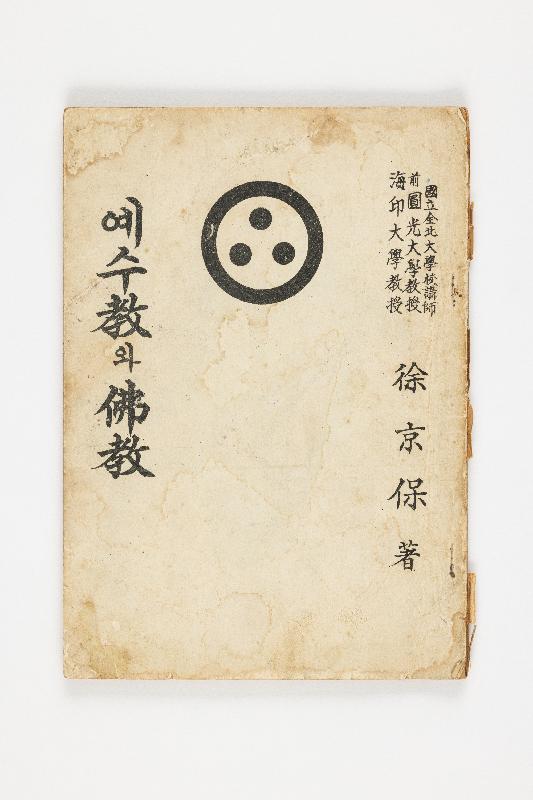 國立全北大學校講師
前圓光大學教授
海印大學教授
徐京保著
예수教와佛教